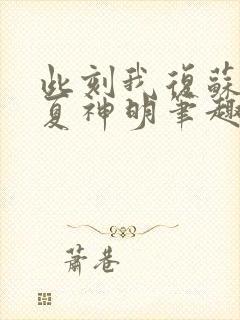 此刻我復蘇
夏神明筆趣
蕭巷